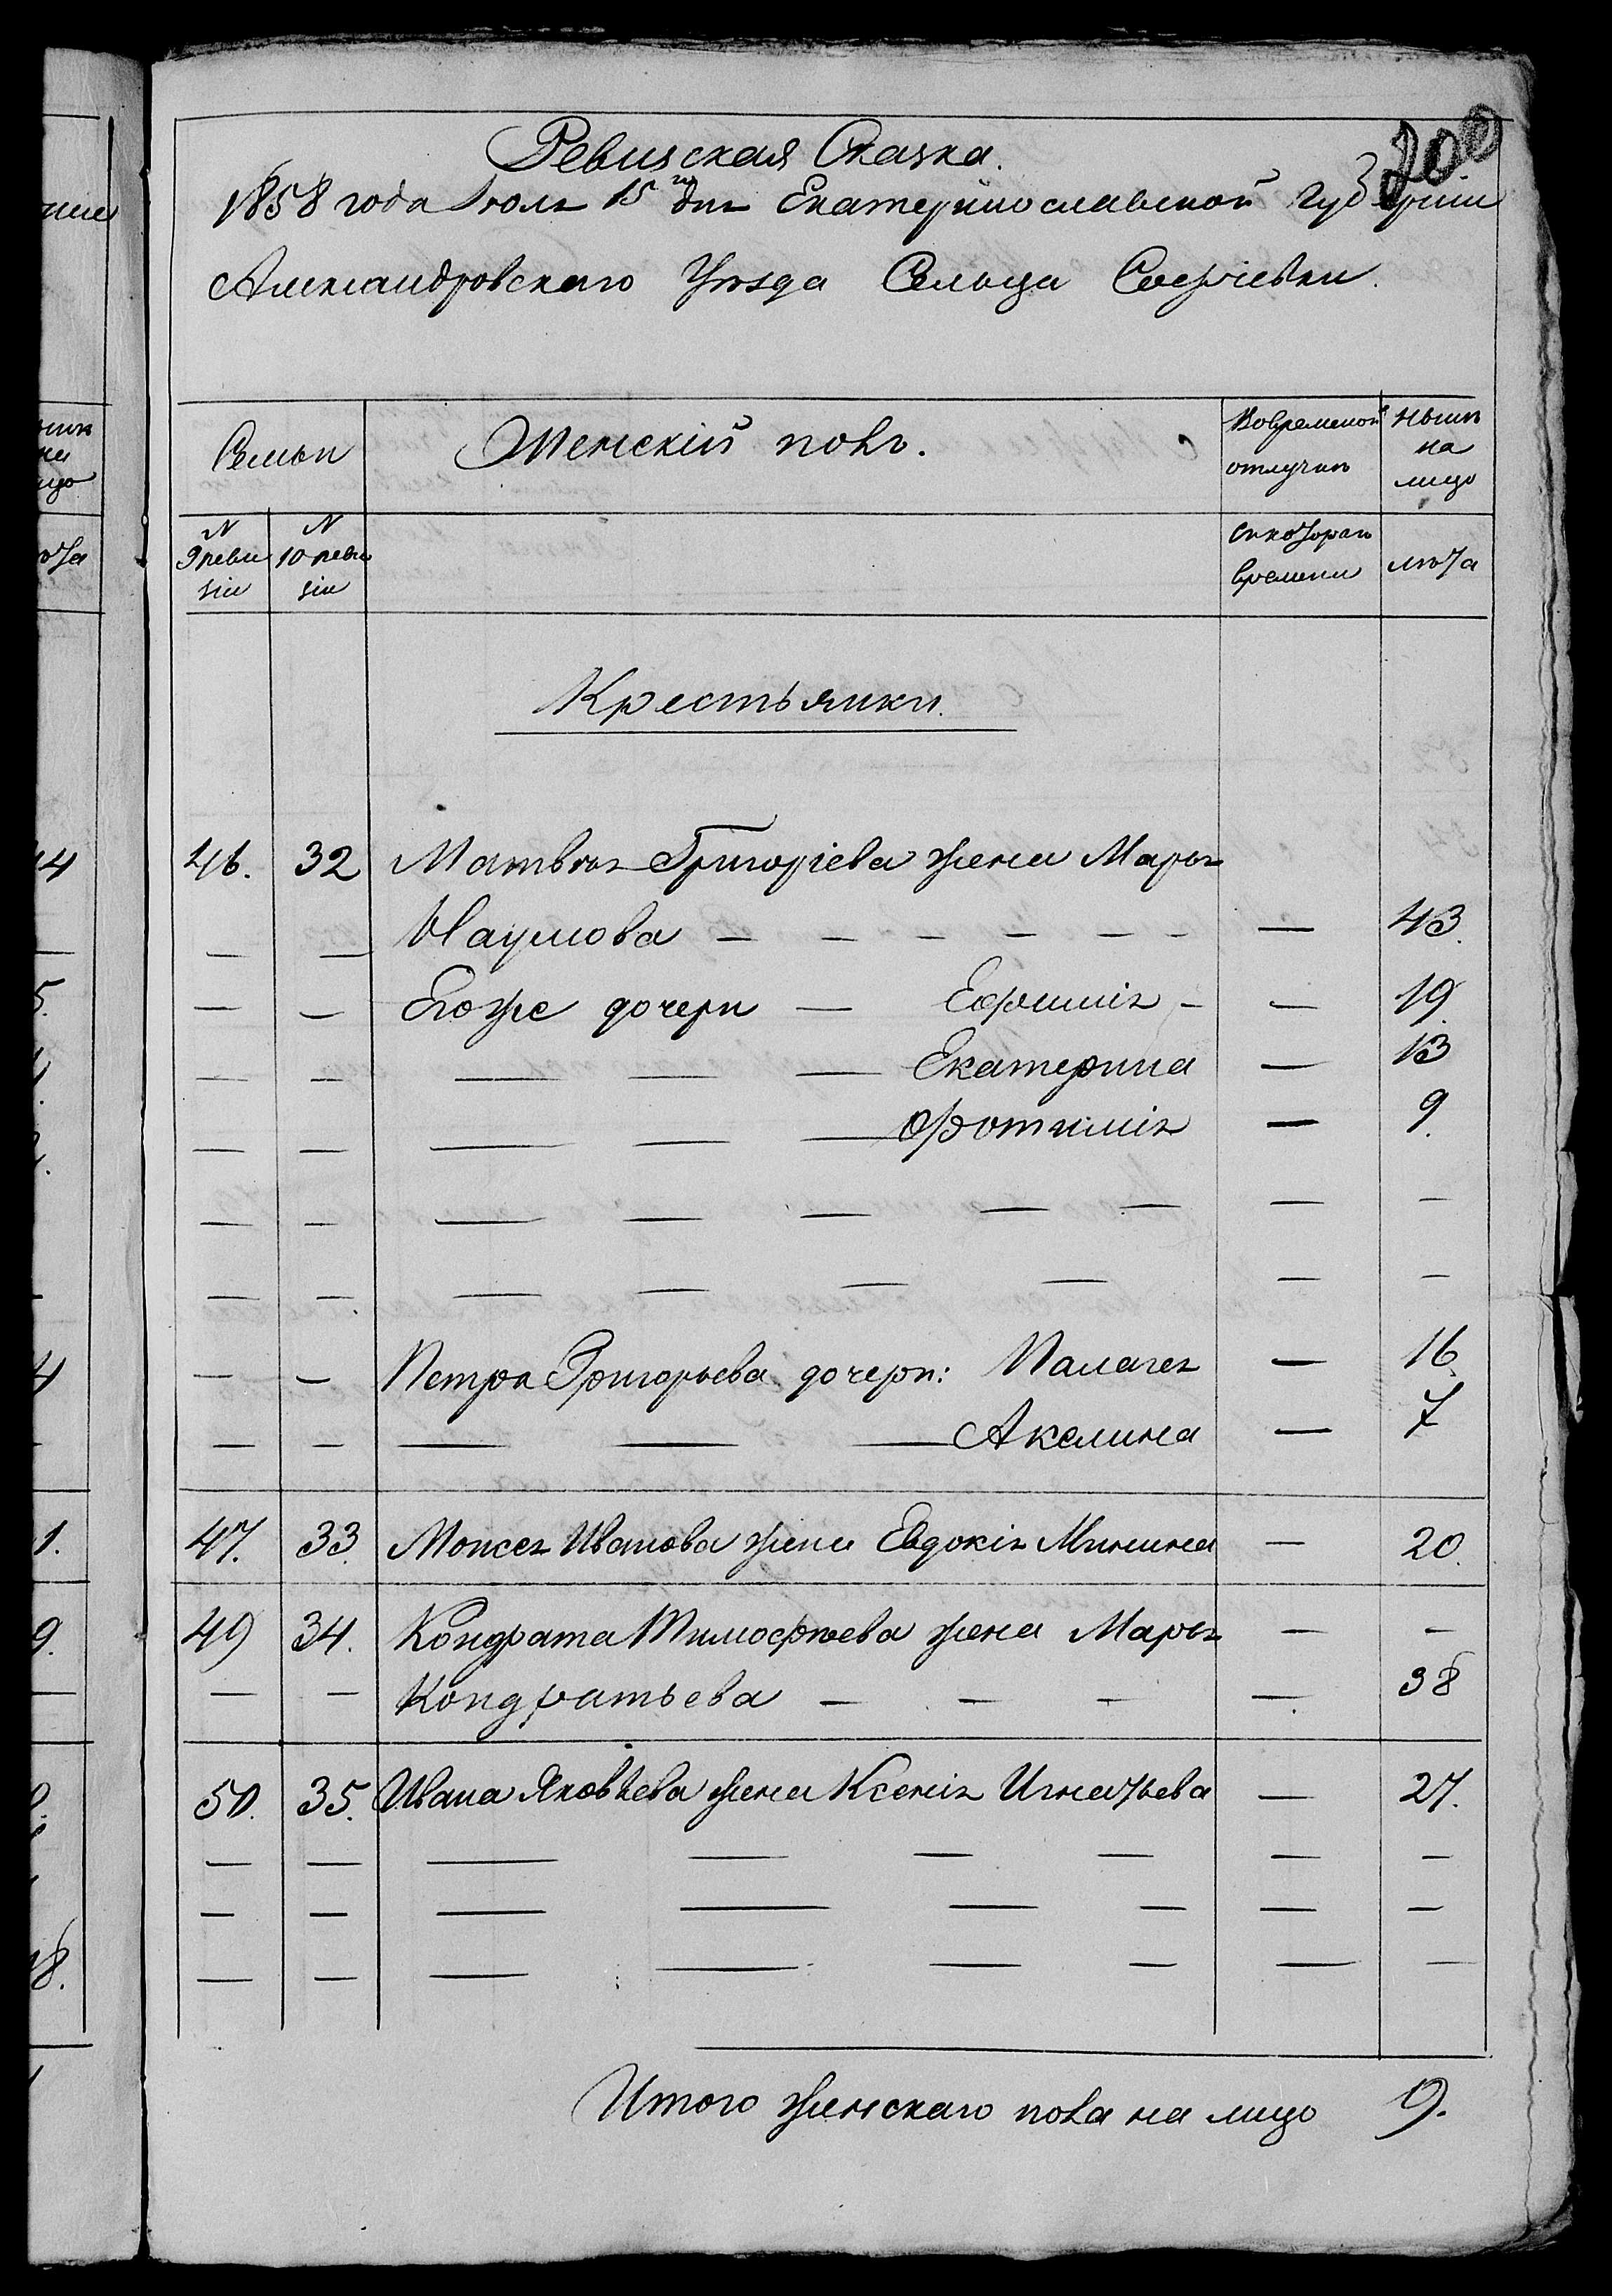 200
Ревизская Сказка.
1858 года Іюля 15го дня Екатеринославской Губерніи
Александровскаго Уѣзда Сельца Софіевки.
Семьи
Женскій полъ.
Вовременой отлучкѣ
Нынѣ на лицо
N 9 реви зіи
N 10 реви зіи
Скоторого времени
лѣта
Крестьянки.
46. 32 Матвѣя Григоріева жена Марья
— — Наумова — — — — — — — 43.
— — Егоже дочери — Ефимія — — 19.
— — — — — Екатерина — 13
— — — — — Фотинія — 9.
— — — — — — — — —
— — — — — — — —
— — Петра Григорьева дочери: Палагея — 16
— — — — — Акелина — 7
47. 33. Моисея Иванова жена Евдокія Минина — 20.
49 34. Кондрата Тимофѣева жена Марья — —
— — Кондратьева — — — — 38
50. 35. Ивана Яковлева жена Ксенія Игнатьева — 27.
— — — — — — — —
— — — — — — — —
— — — — — — — —
Итого женскаго пола на лицо 9.